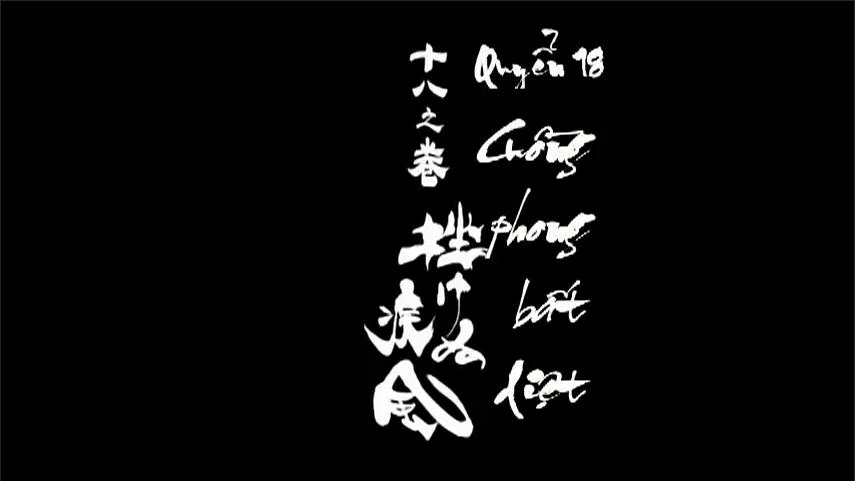 十八之巻
挫けぬ
疾風
Quyển 18
Cuồng
phong
bất
diệt